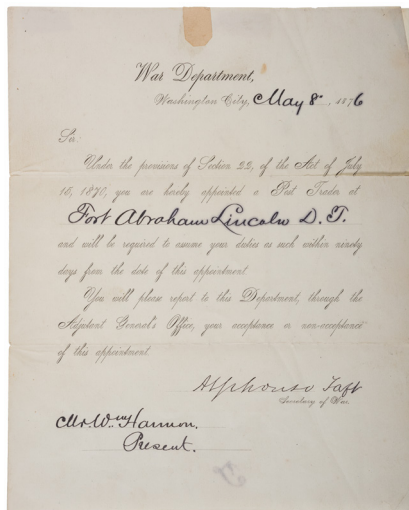 War Department,
Washington City, May 8" 1876
Sir:
Under the provisions of Section 22, of the Act of July
15, 1870, you are hereby appointed a Post Trader at
Fort Abraham Lincoln D. T.
and will be required to assume your duties as such within ninety
days from the date of this appointment.
You will please report to this Department, through the
Adjutant General's Office, your acceptance or non-acceptance
of this appointment.
Alphonso Taft
Secretary of War.
Mr. Wm Harmon,
Present.